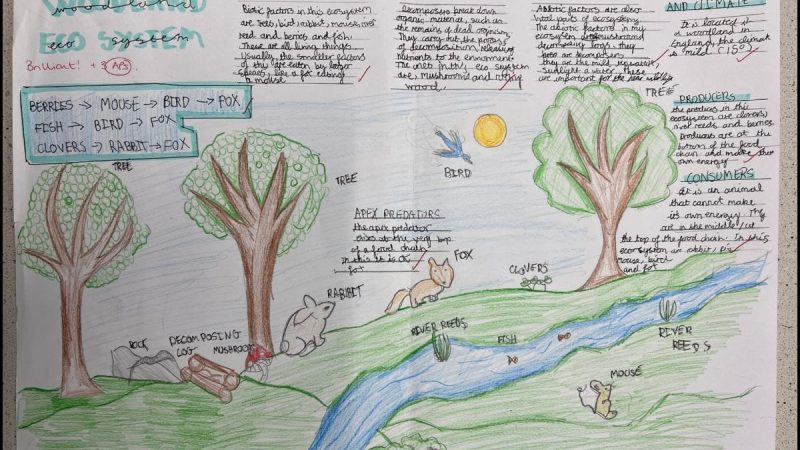 woodland
ECO SYSTEM
eco system
Brilliant!
BERRIES → MOUSE → BIRD → FOX
FISH → BIRD → FOX
CLOVERS → RABBIT → FOX
Biotic factors in this ecosystem
are trees, bird, rabbit, mouse, river
reed and berries and fish.
These are all living things.
Usually, the smaller factors
of they are eaten by larger
species, like a fox eating
a mouse
Decomposers break down
organic material, such as
the remains of dead organisms.
They carry out the process
of decomposition, releasing
nutrients to the environment.
The ones in this eco system
are, mushrooms and rotting
wood.
Abiotic factors are also
vital parts of ecosystems.
The abiotic factors in my
ecosystem are mushroom and
decomposing logs, they
both are decomposers
they are the mild
sunlight & water. These
are important for the
AND CLIMATE
It is located in
a woodland in
England, the climate
is mild (15°)
PRODUCERS
the producers in this
ecosystem are clovers,
river reeds and berries.
Producers are at the
bottom of the food
chain and make their
own energy
CONSUMERS
It is an animal
that cannot make
it's own energy. They
are in the middle / at
the top of the food chain. In this
ecosystem are rabbit, fish
mouse, bird
and fox
APEX PREDATORS
the apex predator
at the very top
of a food chain
in this it is a
fox
TREE
TREE
TREE
BIRD
FOX
CLOVERS
RABBIT
ROCK
DECOMPOSING
LOG
MUSHROOM
RIVER REEDS
FISH
RIVER
REEDS
MOUSE